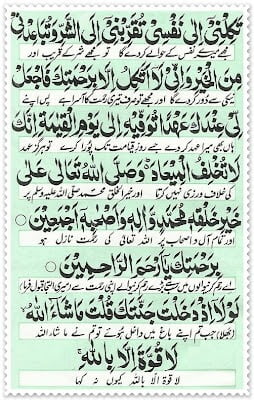 تَكِلْنِيْ اِلٰى نَفْسِيْ تُقَرِّبُنِيْ اِلَى الشَّرِّ وَتُبَاعِدُنِيْ
مجھے میرے نفس کے حوالے کردے گا تو مجھے شر کے قریب اور
مِنَ الْخَيْرِ وَاِنِّيْ لَا اَتَّكِلُ اِلَّا بِرَحْمَتِكَ فَاجْعَلْ
نیکی سے دور کردے گا اور مجھے تو صرف تیری رحمت کا آسرا ہے پس اپنے
لِيْ عِنْدَكَ عَهْدًا تُوَفِّيْهِ اِلٰى يَوْمِ الْقِيٰمَةِ اِنَّكَ
ہاں بھی میرا عہد کردے جسے روز قیامت تک پورا کرے تو ہرگز عہد
لَا تُخْلِفُ الْمِيْعَادَ وَصَلَّى اللّٰهُ تَعَالٰى عَلٰى
کی خلاف ورزی نہیں کرتا اور خیر الخلق محمد صلی اللہ علیہ وسلم پر
خَيْرِ خَلْقِهٖ مُحَمَّدٍ وَّاٰلِهٖ وَاَصْحَابِهٖ اَجْمَعِيْنَ
اور تمام آل و اصحاب پر اللہ تعالیٰ کی رحمت نازل ہو
بِرَحْمَتِكَ يَا اَرْحَمَ الرَّاحِمِيْنَ
اے رحم کرنیوالوں میں بڑے رحم کرنیوالے اپنی رحمت سے
لَوْلَا اِذْ دَخَلْتَ جَنَّتَكَ قُلْتَ مَا شَآءَ اللّٰهُ
جب تم اپنے باغ میں داخل ہوئے تو تم نے ما شاء اللہ
لَا قُوَّةَ اِلَّا بِاللّٰهِ
لا قوۃ الا باللہ کیوں نہ کہا